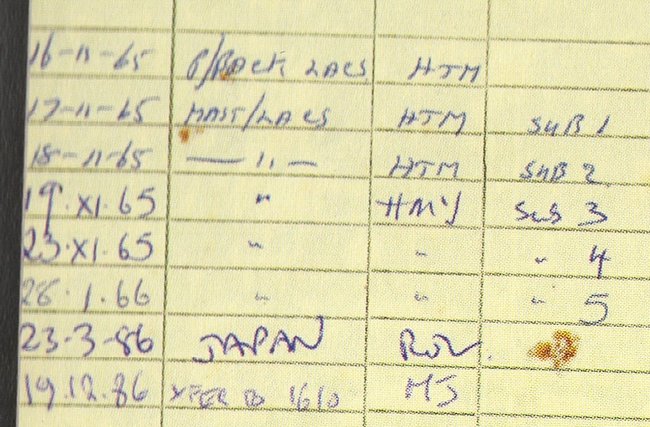 16-11-65 P/BACK LACS HTM
17-11-65 MAST/LACS HTM SUB 1
18-11-65 — 11 — HTM SUB 2
19.XI.65 " HMY SUB 3
23.XI.65 " " " 4
28.1.66 " " " 5
23-3-86 JAPAN
19.12.86 XFER DO 1610 MJ